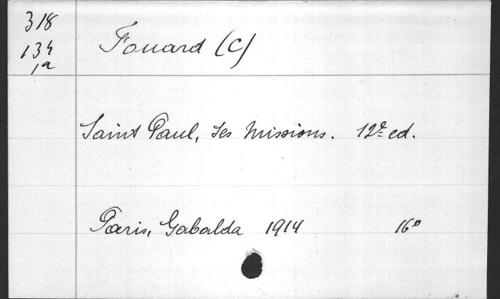 318
134
1a
Fouard (C)
Saint Paul, ses missions. 12e ed.
Paris, Gabalda 1914 16°